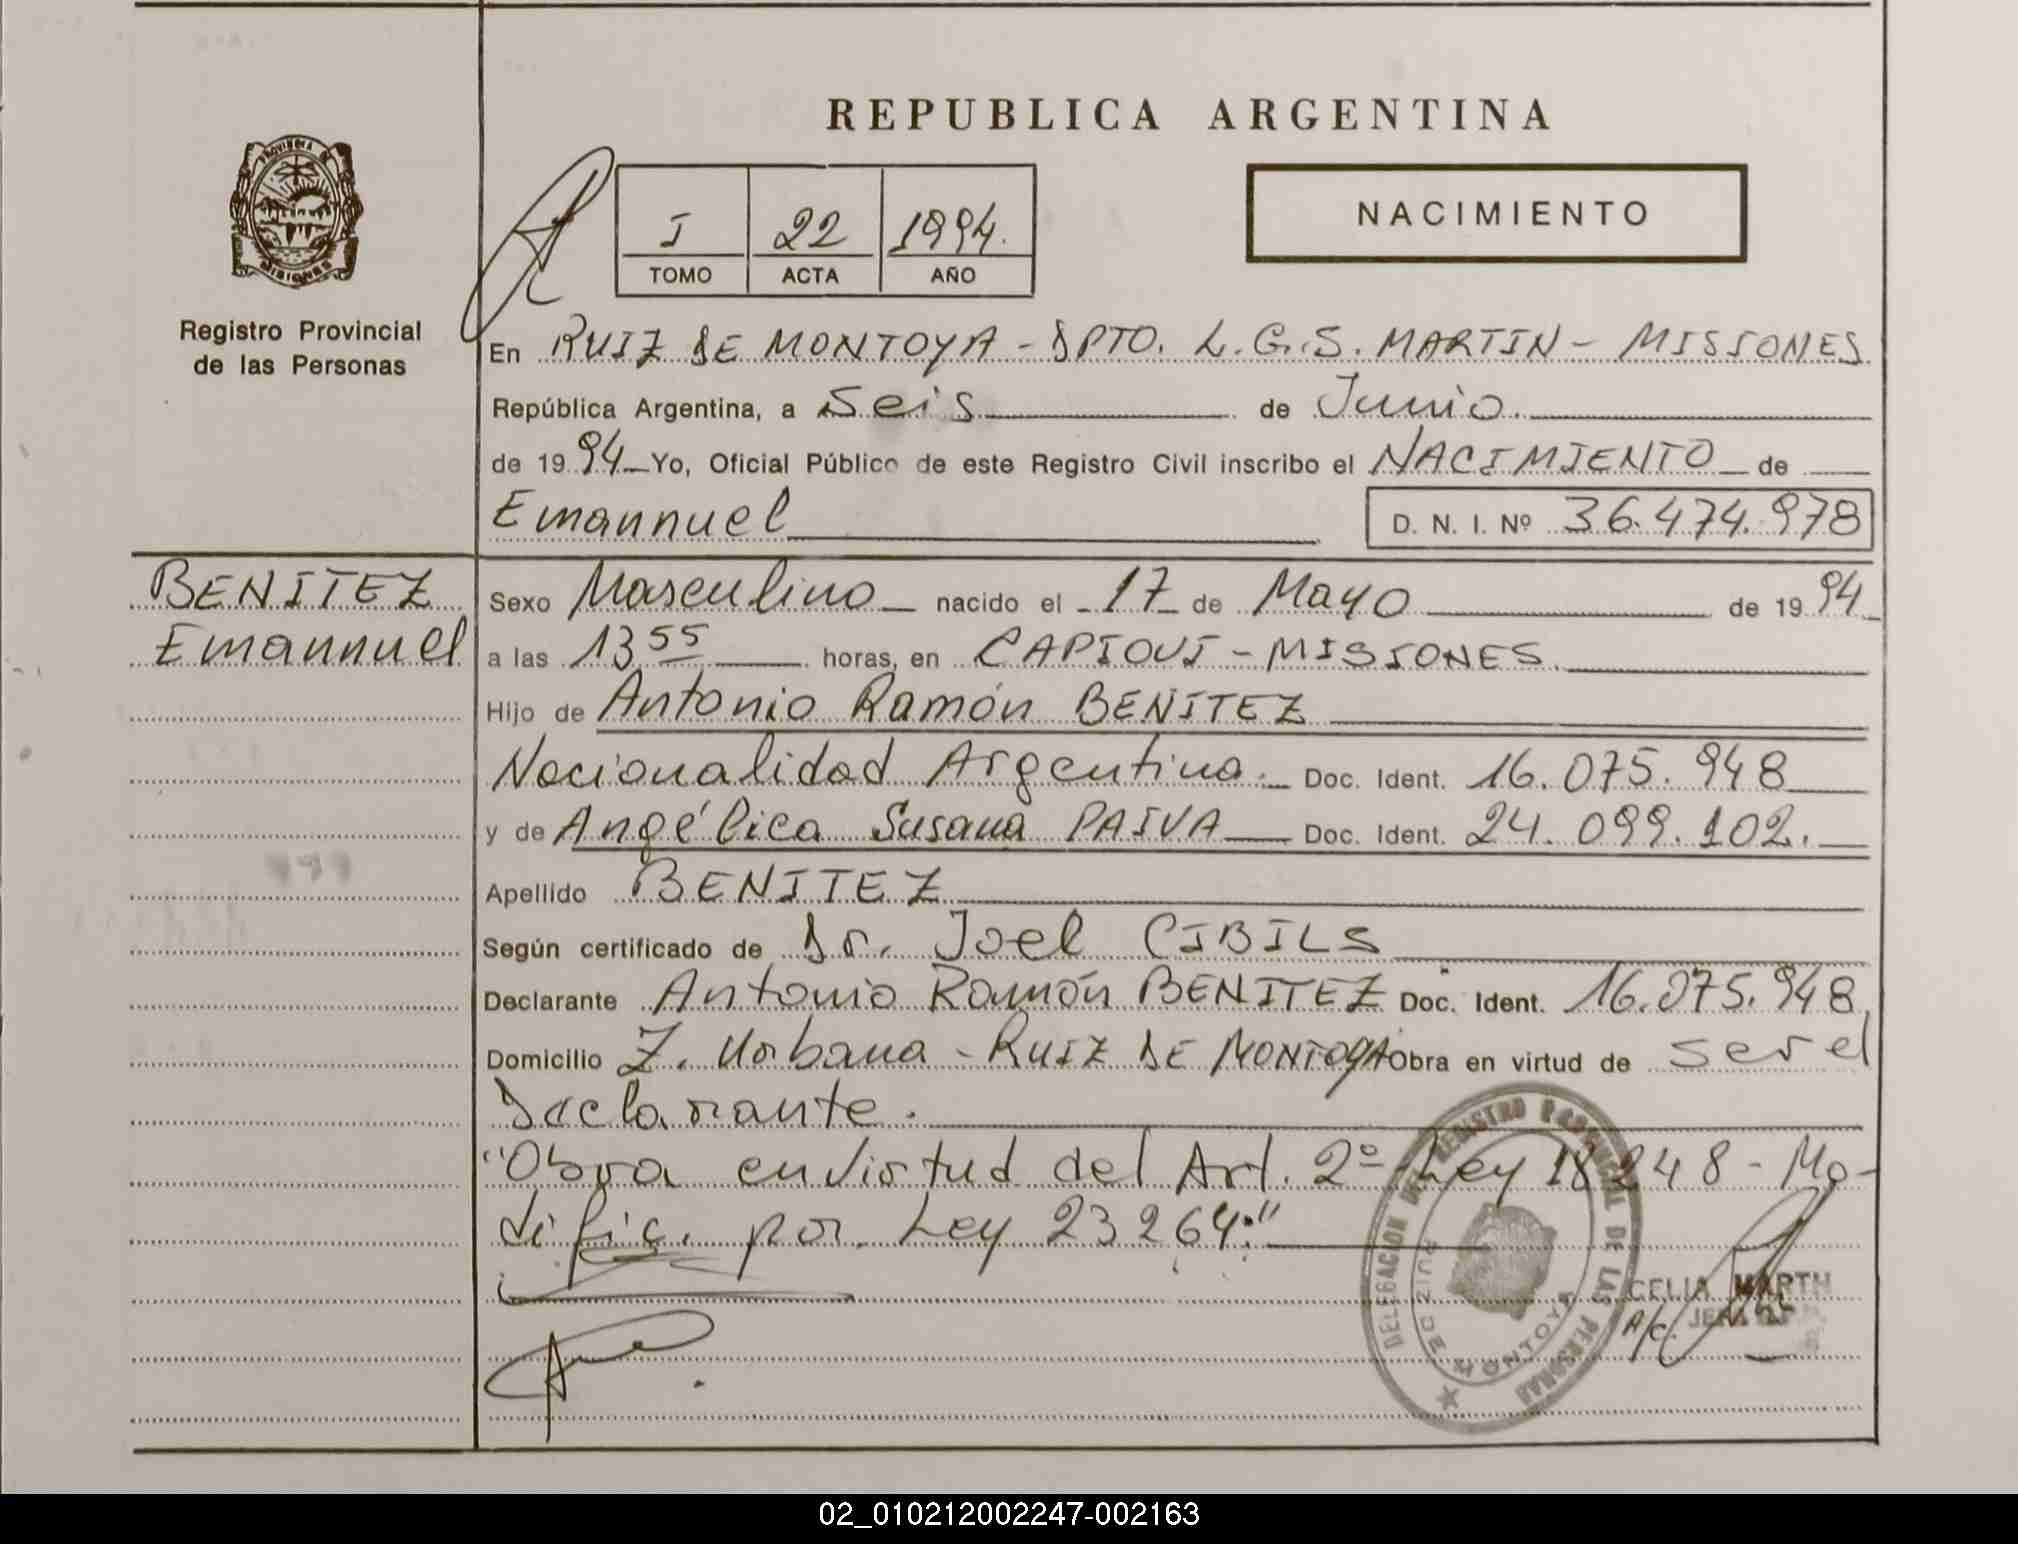 REPUBLICA ARGENTINA
PROVINCIA DE MISIONES
Registro Provincial
de las Personas
I 22 1994.
TOMO ACTA AÑO
NACIMIENTO
En RUIZ DE MONTOYA - DPTO. L.G.S. MARTIN - MISIONES
República Argentina, a Seis de Junio.
de 1994 Yo, Oficial Público de este Registro Civil inscribo el NACIMIENTO de
Emannuel D. N. I. Nº 36.474.978
BENITEZ
Emannuel
Sexo Masculino nacido el 17 de Mayo de 1994
a las 13 55 horas, en CAPIOVI - MISIONES.
Hijo de Antonio Ramón BENITEZ
Nacionalidad Argentina. Doc. Ident. 16.075.948
y de Angélica Susana PAIVA Doc. Ident. 24.099.102.
Apellido BENITEZ
Según certificado de Dr. Joel CIBILS
Declarante Antonio Ramón BENITEZ Doc. Ident. 16.075.948
Domicilio Z. Urbana - RUIZ DE MONTOYA Obra en virtud de ser el
Declarante.
"Obra en virtud del Art. 2º Ley 18248 - Mo-
dific. por Ley 23264."
DELEGACION DEL REGISTRO PROVINCIAL DE LAS PERSONAS
RUIZ DE MONTOYA
CELIA MARTH
A/C. JEFA
02_010212002247-002163